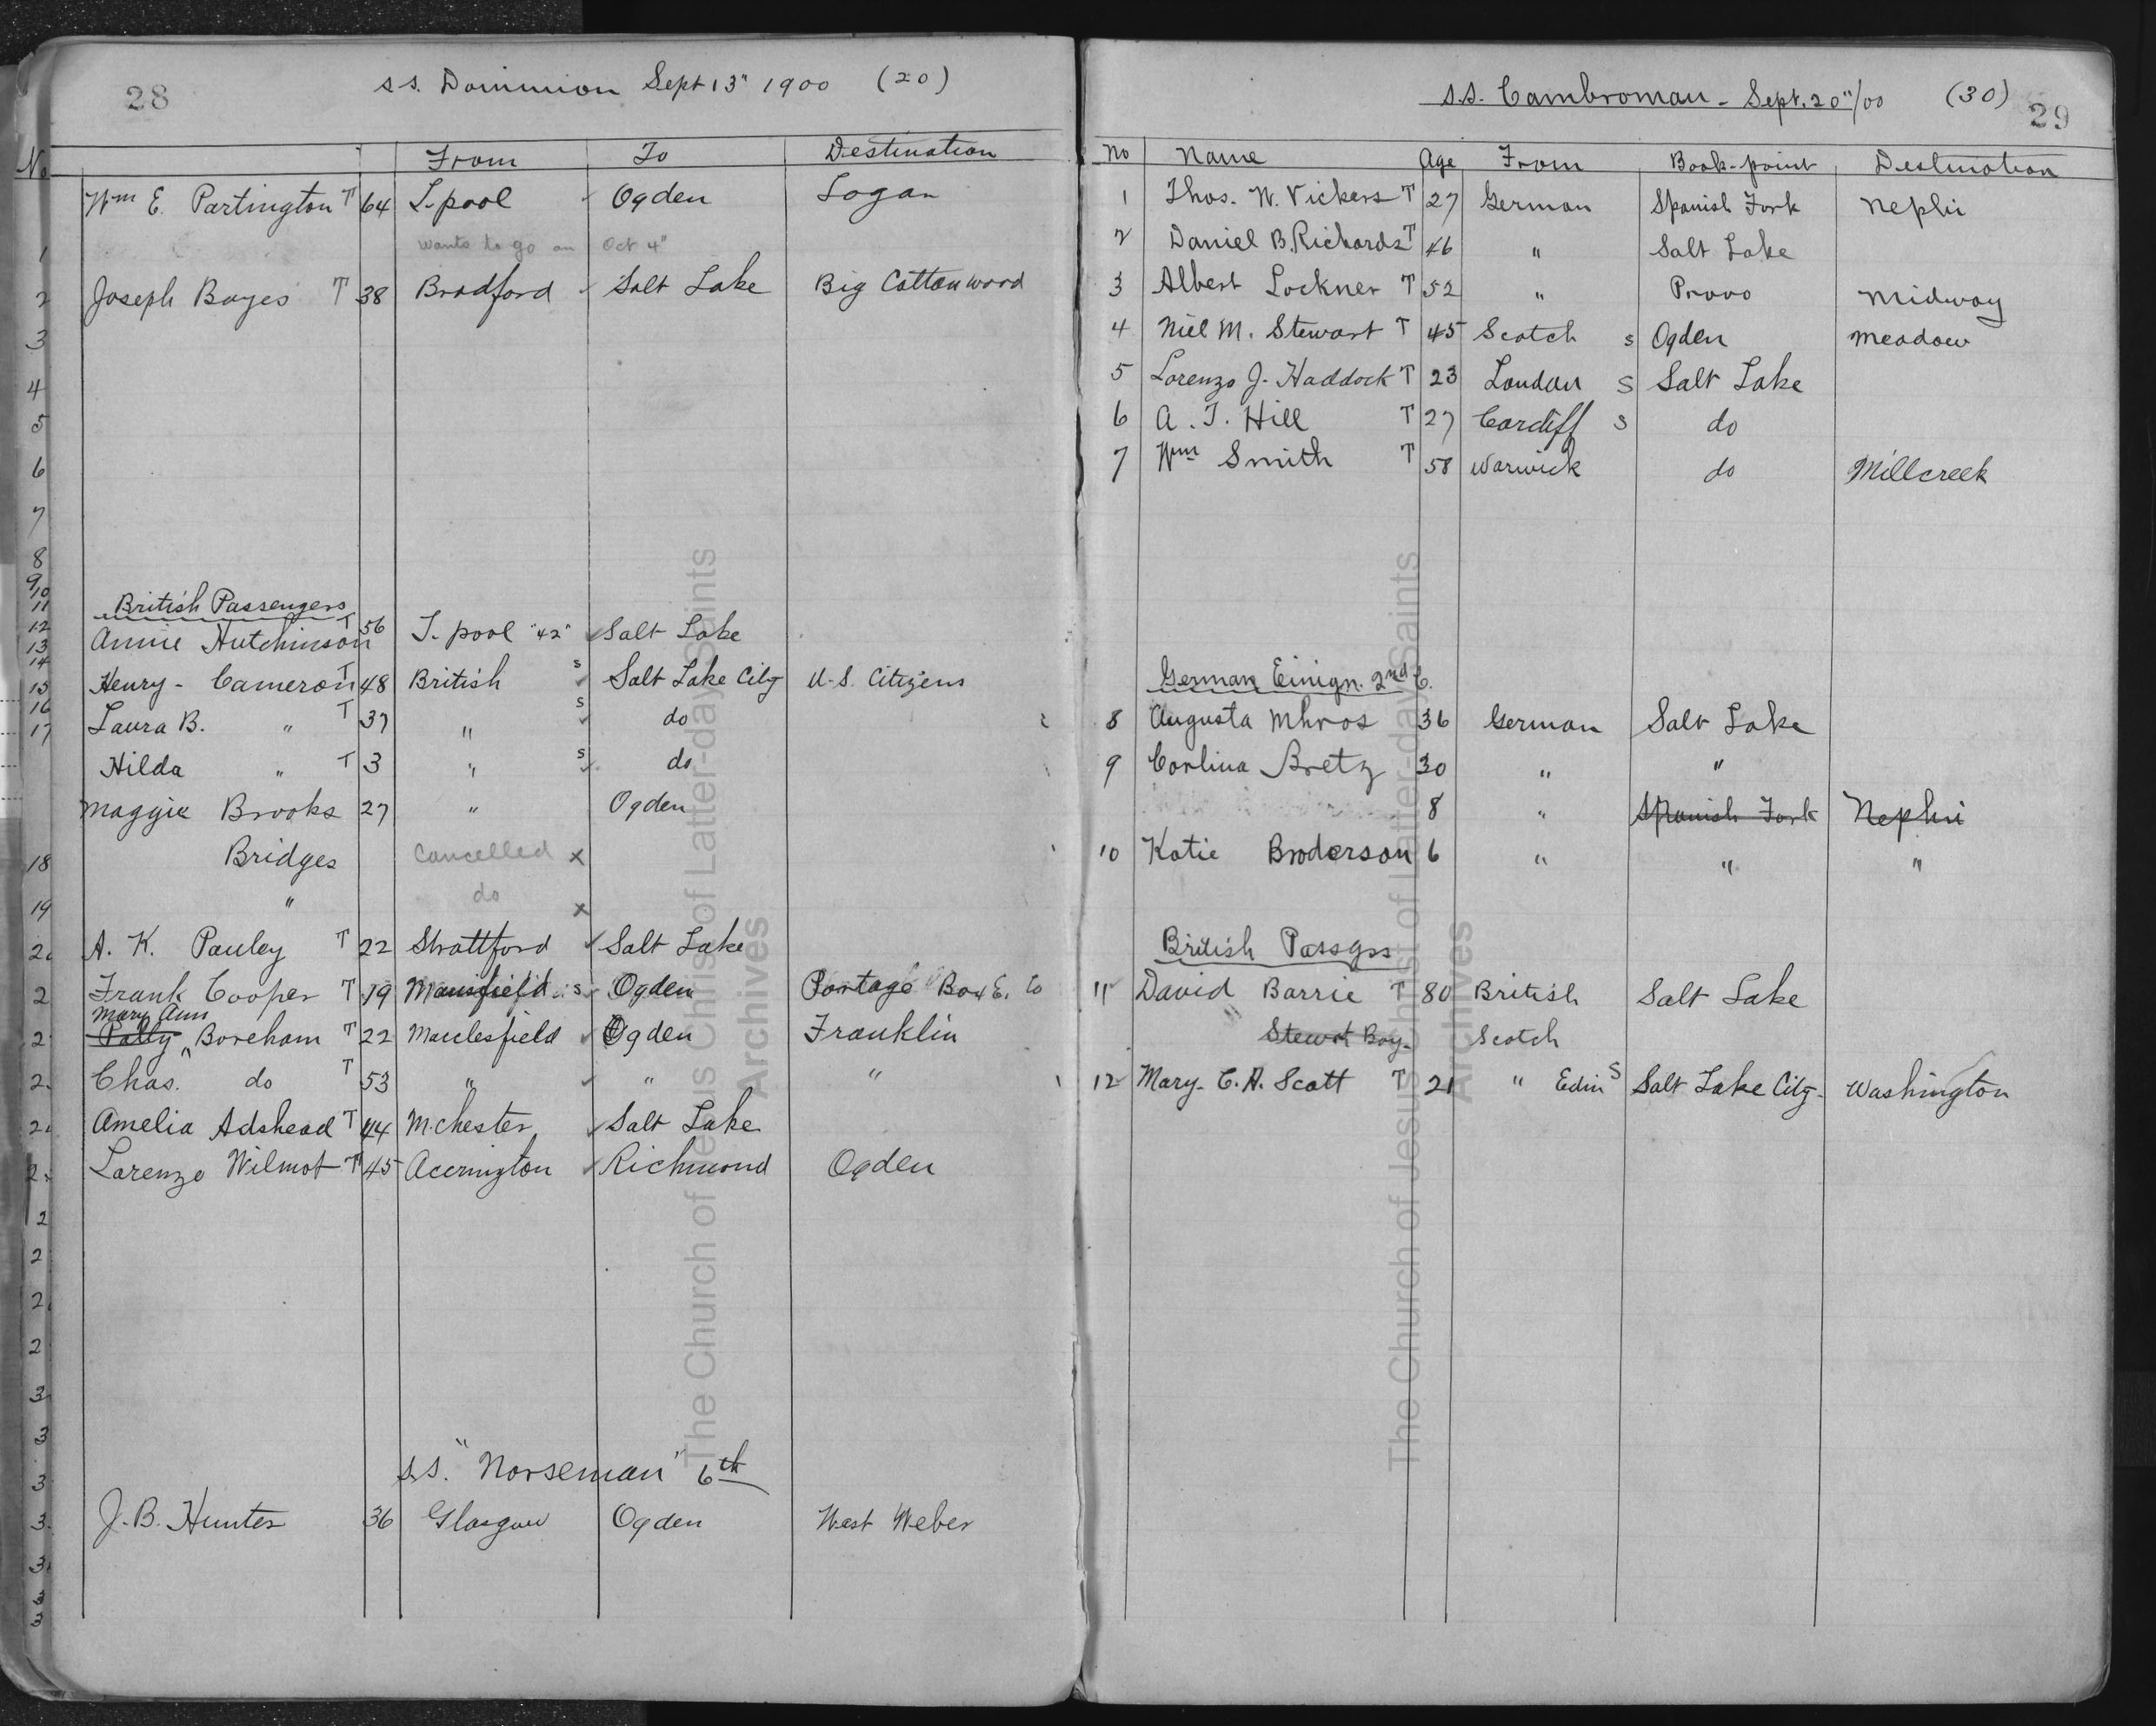 28
S.S. Dominion Sept 13" 1900 (20)
No From To Destination
Wm E. Partington T 64 L.pool Ogden Logan
wants to go on Oct 4"
Joseph Bayes T 38 Bradford Salt Lake Big Cottonwood
British Passengers
Annie Hutchinson T 56 L.pool "42" Salt Lake
Henry - Cameron T 48 British s Salt Lake City U.S. Citizens
Laura B. " T 37 " s do
Hilda " T 3 " s do
Maggie Brooks 27 " Ogden
Bridges Cancelled x
" do x
A. K. Pauley T 22 Strattford Salt Lake
Frank Cooper T 19 Mansfield s Ogden Portage Box E. Co
Mary Ann
Polly ^ Boreham T 22 Maclesfield Ogden Franklin
Chas. do T 53 " " "
Amelia Adshead T 44 M.chester Salt Lake
Lorenzo Wilmot T 45 Accrington Richmond Ogden
S.S. "Norseman" 6th
J. B. Hunter 36 Glasgow Ogden West Weber
1
2
3
4
5
6
7
8
9
10
11
12
13
14
15
16
17
18
19
S.S. Cambroman - Sept. 20"/00 (30)
29
No Name Age From Book-point Destination
1 Thos. W. Vickers T 27 German Spanish Fork Nephi
2 Daniel B. Richards T 46 " Salt Lake
3 Albert Lockner T 52 " Provo Midway
4 Niel M. Stewart T 45 Scotch s Ogden Meadow
5 Lorenzo J. Haddock T 23 London S Salt Lake
6 A. J. Hill T 27 Cardiff S do
7 Wm Smith T 58 Warwick do Millcreek
German Emign. 2nd C.
8 Augusta Mhros 36 German Salt Lake
9 Corlina Bretz 30 " "
8 " Spanish Fork Nephi
10 Katie Broderson 6 " " "
British Passgrs
11 David Barrie T 80 British Salt Lake
Stewart Boy. Scotch
12 Mary. C. A. Scott T 21 " Edin S Salt Lake City - Washington
The Church of Jesus Christ of Latter-day Saints
Archives
The Church of Jesus Christ of Latter-day Saints
Archives